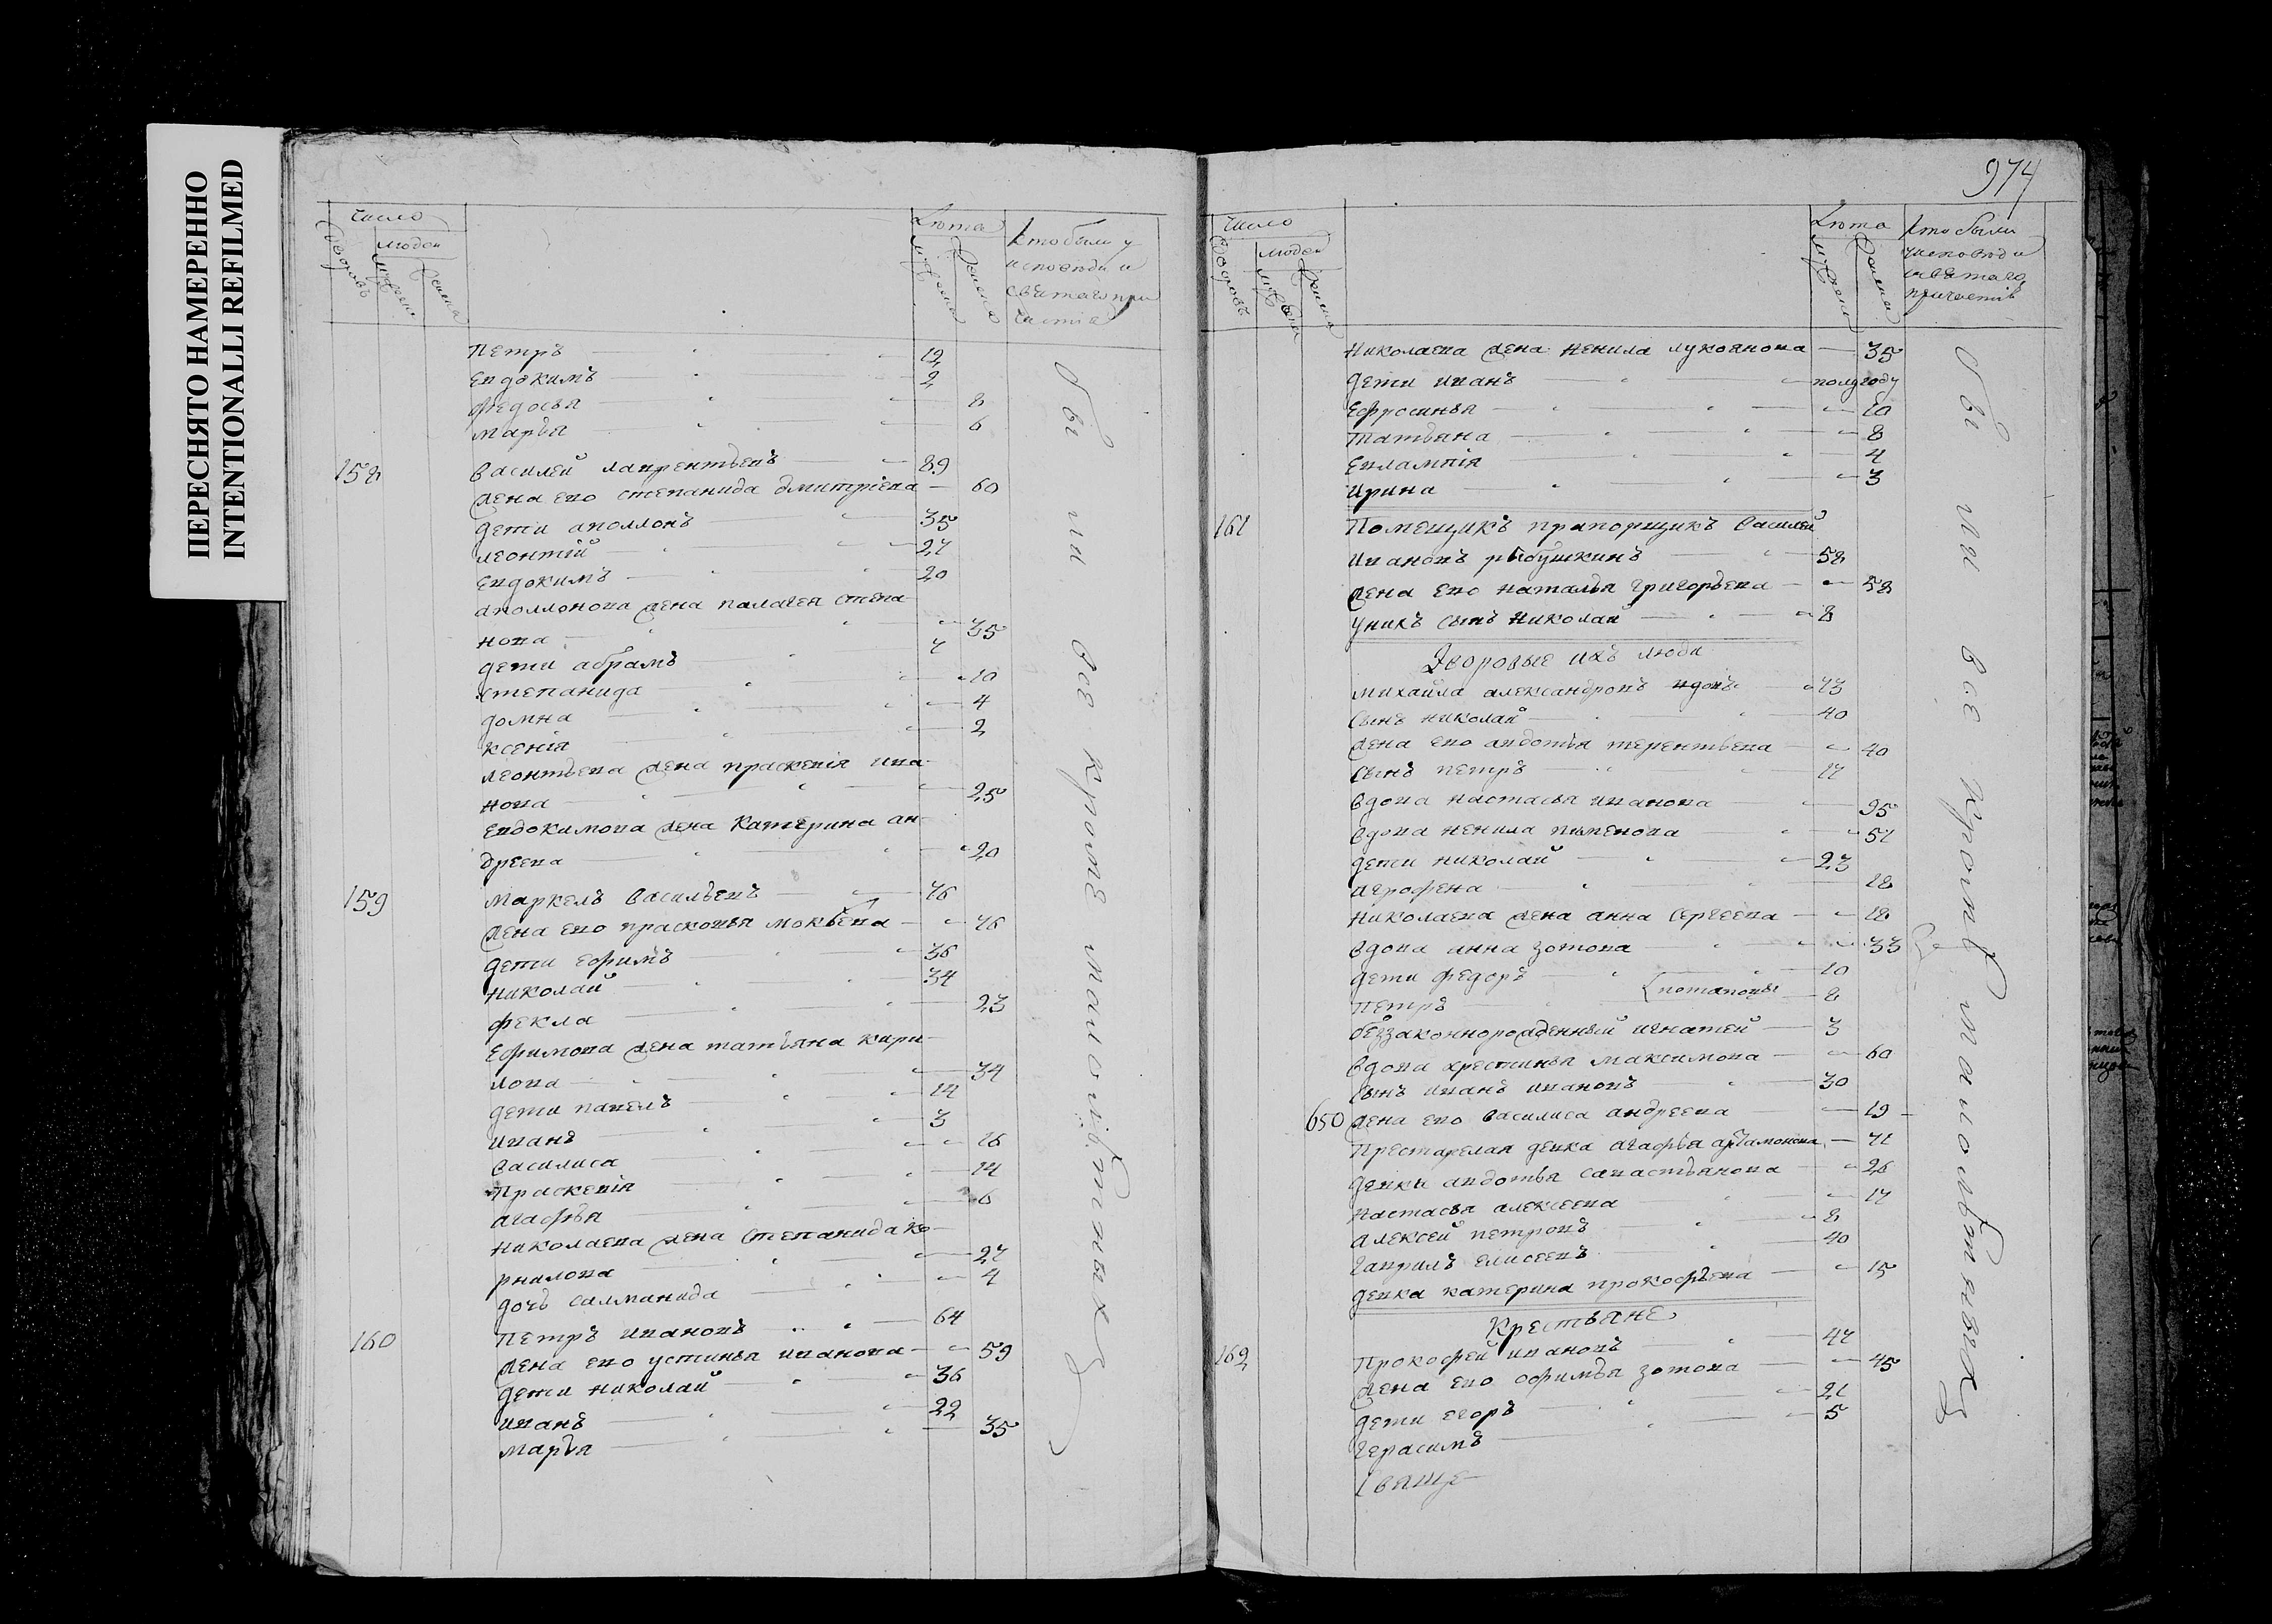 ПЕРЕСНЯТО НАМЕРЕННО
INTENTIONALLI REFILMED
число
дворовъ
людей
мужеск
женска
Лѣта
мужска
женска
кто были у
исповѣди и
святаго при
частія
Петръ 12
Евдокимъ 2
Федосья 8
Марья 6
158 Василей Лаврентьевъ 89
жена ево Степанида Дмитріева 60
дети Аполлонъ 35
Леонтій 27
Евдокимъ 20
Аполлонова жена Палагея Степа
нова 35
дети Абрамъ 7
Степанида 10
Домна 4
Ксенія 2
Леонтьева жена Праскевія Ива
нова 25
Евдокимова жена Катерина Ан
дреева 20
159 Маркелъ Васильевъ 76
жена ево Прасковья 76
дети Ефимъ 36
Николай 34
Фекла 23
Ефимова жена Татьяна Кири
лова 34
дети Павелъ 14
Иванъ 3
Василиса 16
Праскевія 14
Агафья 6
Николаева жена Степанида Ко
рнилова 27
дочь Салманида 4
160 Петръ Ивановъ 64
жена ево Устинья Иванова 59
дети Николай 36
Иванъ 22
Марья 35
были все кроме малолѣтныхъ
974
число
дворовъ
людей
мужеска
женска
Лѣта
мужеска
женска
кто были
у исповѣди
и святаго
причастія
Николаева жена Ненила Лукоянова 35
дети Иванъ полугоду
Ефросинья 10
Татьяна 8
Евлампія 4
Ирина 3
161 Помещикъ прапорщикъ Василей
Ивановъ Рыбушкинъ 58
жена ево Наталья Григорьева 58
у них сынъ Николай 8
Дворовые ихъ люди
Михайла Александровъ вдовъ 73
сынъ Николай 40
жена ево Авдотья Терентьева 40
сынъ Петръ 17
вдова Настасья Иванова 95
вдова Ненила Пименова 57
дети Николай 23
Агрофена 18
Николаева жена Анна Сергеева 18
вдова Анна Зотова 33
дети Федоръ 10
Петръ Потаповы 8
беззаконнорожденный Игнатей 3
вдова Хрестинья Максимова 60
сынъ Иванъ Ивановъ 30
650 жена ево Василиса Андреева 19
Престарелая девка Агафья Артамонова 71
девки Авдотья Савастьянова 26
Настасья Алексеева 17
Алексей Петровъ 8
Гаврилъ Елисеевъ 40
девка Катерина Прокофьева 15
Крестьяне
162 Прокофей Ивановъ 47
жена ево Офимья Зотова 45
дети Егоръ 21
Герасимъ 5
были все кроме малолѣтныхъ